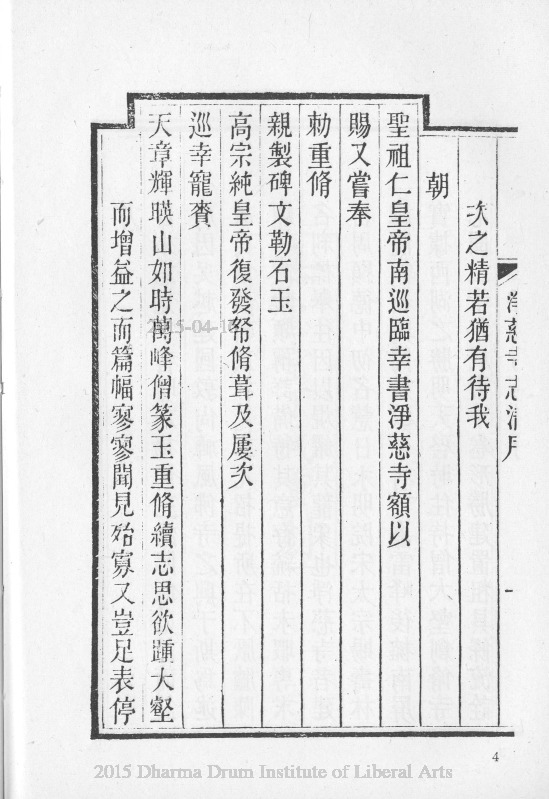 次之精若猶有待我
朝
聖祖仁皇帝南巡臨幸書淨慈寺額以
賜又嘗奉
勅重脩
親製碑文勒石玉
高宗純皇帝復發帑脩葺及屢次
巡幸寵賚
天章輝暎山如時萬峰僧篆玉重脩續志思欲踵大壑
而增益之而篇幅寥寥聞見殆寡又豈足表停
一
4
2015-04-1
2015 Dharma Drum Institute of Liberal Arts